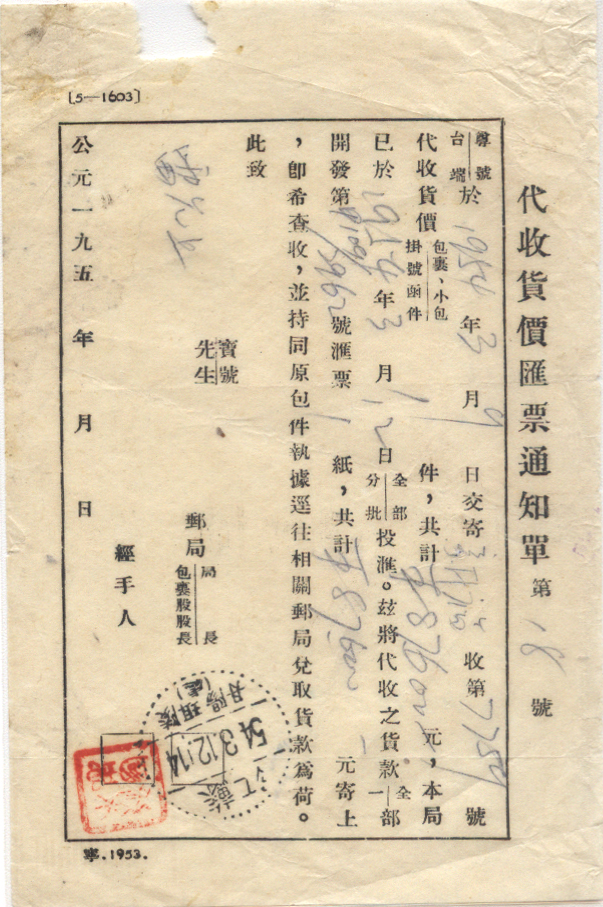 〔5—1603〕
代收貨價匯票通知單 第 18 號
尊號
台端
於 1954 年 3 月 9 日交寄 收第 7759 號
代收貨價
包裹、小包
掛號函件
1 件，共計 元，本局
已於 1954 年 3 月 12 日
全部
分批
投滙。玆將代收之貨款
全
一
部
開發第 5962 號滙票 1 紙，共計 元寄上
，卽希查收，並持同原包件執據逕往相關郵局兌取貨款爲荷。
此致
寶號
先生
郵局
局長
包裹股股長
經手人
公元一九五 年 月 日
江蘇
54.3.12.14
丹陽
寧.1953.